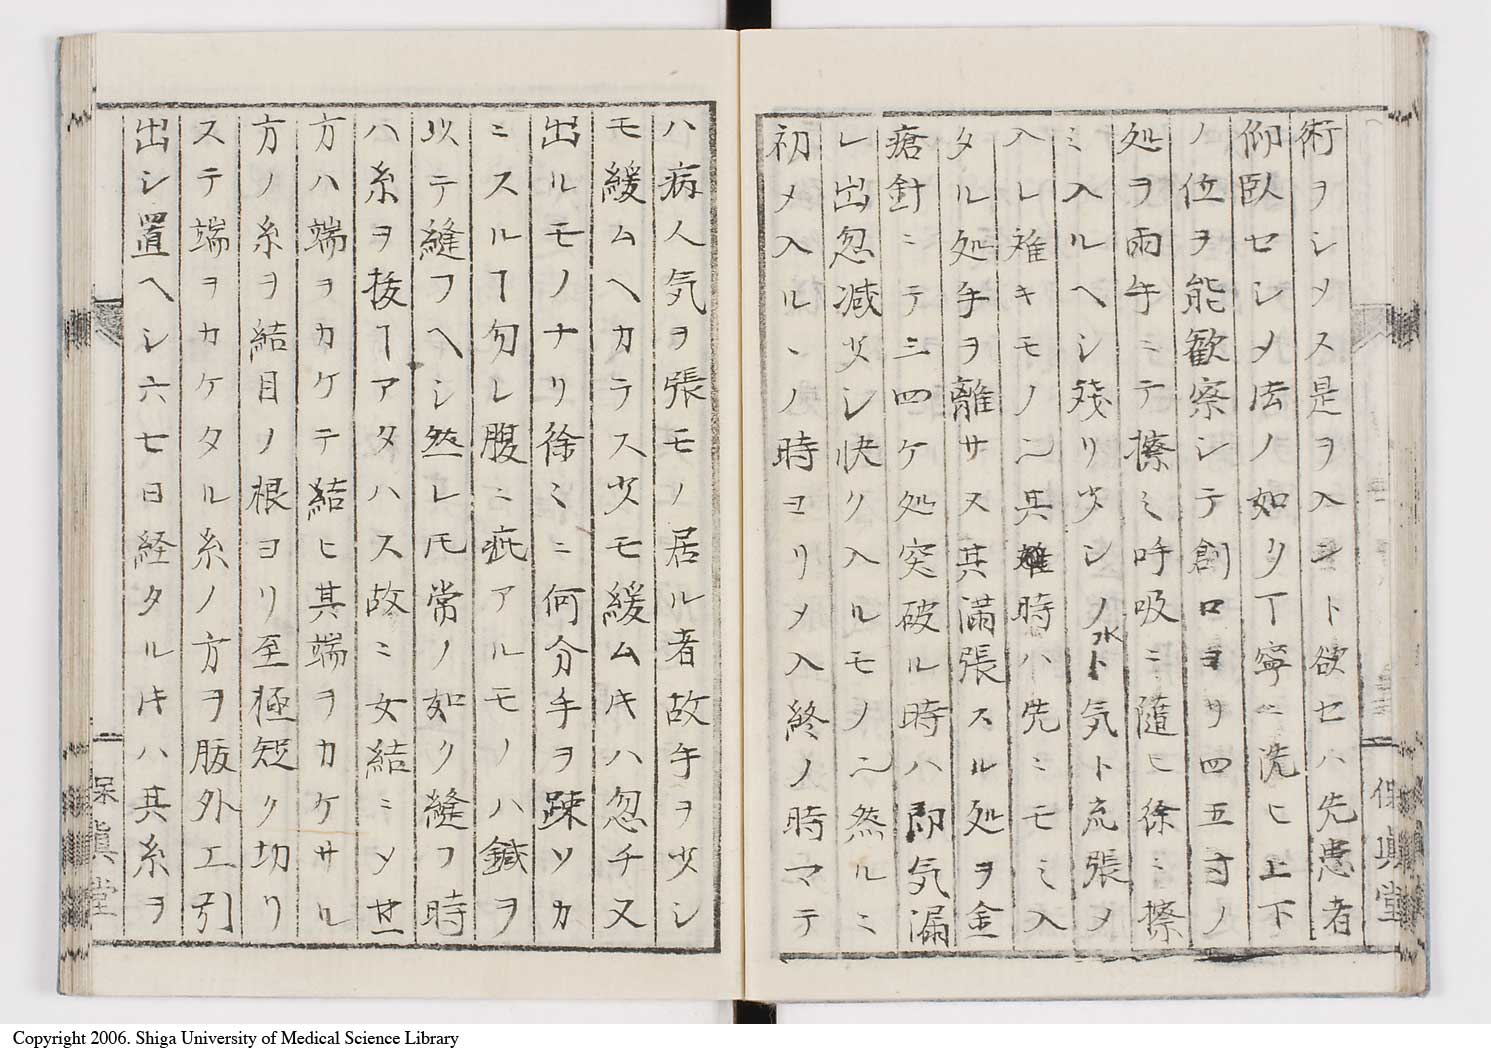 術ヲシメス是ヲ入ント欲セハ先患者
仰臥セシメ法ノ如ク丁寧ニ洗ヒ上下
ノ位ヲ能歓察シテ創口ヨリ四五寸ノ
処ヲ両手ニテ擦ミ呼吸ニ随ヒ徐ミ擦
ミ入ルヘシ残リ少シノ水ト気ト充張メ
入レ雉キモノ〳其雖時ハ先ニモミ入
タル処手ヲ離サス其満張スル処ヲ金
瘡針ニテ三四ケ処突破ル時ハ即気漏
レ出忽减少シ快ク入ルモノ〳然ルニ
初メ入ルヽノ時ヨリメ入終ノ時マテ
保真堂
ハ病人気ヲ張モノ居ル者故手ヲ少シ
モ緩ムヘカラス少モ緩ムキハ忽チ又
出ルモノナリ徐ミニ何分手ヲ疎ソカ
ニスルヿ勿レ腹ニ疵アルモノハ鍼ヲ
以テ縫フヘシ然レ𪜈常ノ如ク縫フ時
ハ糸ヲ抜ヿアタハス故ニ女結ミメ世
方ハ端ヲカケテ結ヒ其端ヲカケサル
方ノ糸ヲ結目ノ根ヨリ至極短ク切リ
ステ端ヲカケタル糸ノ方ヲ腹外エ引
出シ置ヘシ六七日経タルキハ其糸ヲ
保眞堂